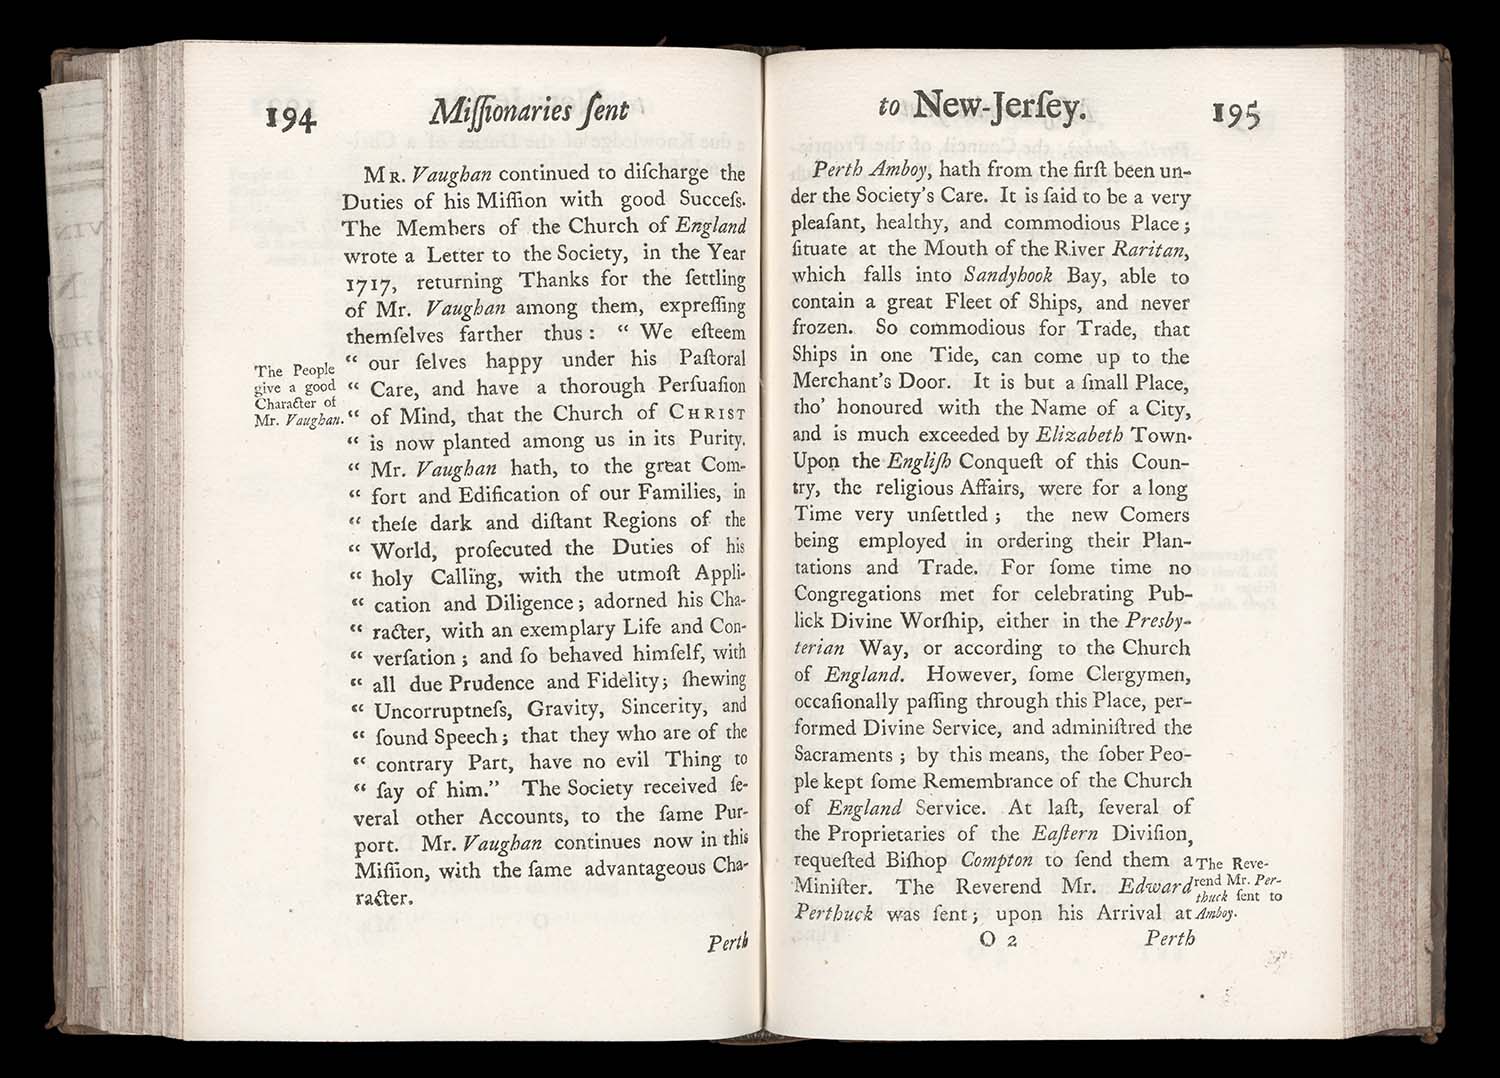 194
Miſſionaries ſent
MR. Vaughan continued to diſcharge the
Duties of his Miſſion with good Succeſs.
The Members of the Church of England
wrote a Letter to the Society, in the Year
1717, returning Thanks for the ſettling
of Mr. Vaughan among them, expreſſing
themſelves farther thus : “ We eſteem
“ our ſelves happy under his Paſtoral
“ Care, and have a thorough Perſuaſion
“ of Mind, that the Church of CHRIST
“ is now planted among us in its Purity.
“ Mr. Vaughan hath, to the great Com-
“ fort and Edification of our Families, in
“ theſe dark and diſtant Regions of the
“ World, proſecuted the Duties of his
“ holy Calling, with the utmoſt Appli-
“ cation and Diligence ; adorned his Cha-
“ racter, with an exemplary Life and Con-
“ verſation ; and ſo behaved himſelf, with
“ all due Prudence and Fidelity; ſhewing
“ Uncorruptneſs, Gravity, Sincerity, and
“ ſound Speech ; that they who are of the
“ contrary Part, have no evil Thing to
“ ſay of him.” The Society received ſe-
veral other Accounts, to the ſame Pur-
port. Mr. Vaughan continues now in this
Miſſion, with the ſame advantageous Cha-
racter.
The People
give a good
Character of
Mr. Vaughan.
Perth
to New-Jerſey.
195
Perth Amboy, hath from the firſt been un-
der the Society's Care. It is ſaid to be a very
pleaſant, healthy, and commodious Place ;
ſituate at the Mouth of the River Raritan,
which falls into Sandyhook Bay, able to
contain a great Fleet of Ships, and never
frozen. So commodious for Trade, that
Ships in one Tide, can come up to the
Merchant's Door. It is but a ſmall Place,
tho' honoured with the Name of a City,
and is much exceeded by Elizabeth Town.
Upon the Engliſh Conqueſt of this Coun-
try, the religious Affairs, were for a long
Time very unſettled ; the new Comers
being employed in ordering their Plan-
tations and Trade. For ſome time no
Congregations met for celebrating Pub-
lick Divine Worſhip, either in the Presby-
terian Way, or according to the Church
of England. However, ſome Clergymen,
occaſionally paſſing through this Place, per-
formed Divine Service, and adminiſtred the
Sacraments ; by this means, the ſober Peo-
ple kept ſome Remembrance of the Church
of England Service. At laſt, ſeveral of
the Proprietaries of the Eaſtern Diviſion,
requeſted Biſhop Compton to ſend them a
Miniſter. The Reverend Mr. Edward
Perthuck was ſent ; upon his Arrival at
The Reve-
rend Mr. Per-
thuck ſent to
Amboy.
O 2
Perth